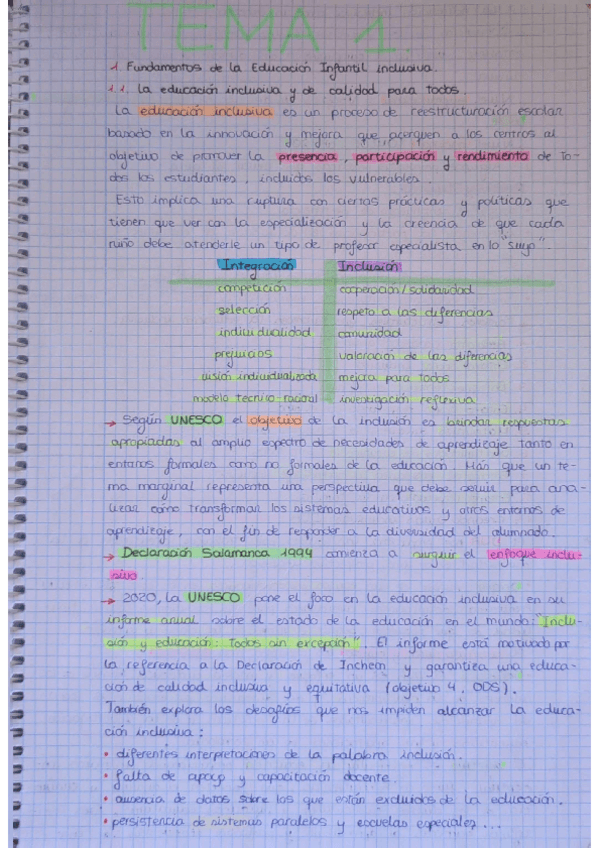 TEMA 1.
1. Fundamentos de la Educación Infantil inclusiva.
1.1. La educación inclusiva y de calidad para todos.
La educación inclusiva es un proceso de reestructuración escolar
basado en la innovación y mejora que acerquen a los centros al
objetivo de promover la presencia, participación y rendimiento de to-
dos los estudiantes, incluidos los vulnerables.
Esto implica una ruptura con ciertas prácticas y políticas que
tienen que ver con la especialización y la creencia de que cada
niño debe atenderle un tipo de profesor especialista en lo "suyo".
Integración Inclusión
competición cooperación/solidaridad
selección respeto a las diferencias
individualidad comunidad
prejuicios valoración de las diferencias
visión individualizada mejora para todos
modelo técnico-racional investigación reflexiva
→ Según UNESCO el objetivo de la inclusión es brindar respuestas
apropiadas al amplio espectro de necesidades de aprendizaje tanto en
entornos formales como no formales de la educación. Más que un te-
ma marginal representa una perspectiva que debe servir para ana-
lizar cómo transformar los sistemas educativos y otros entornos de
aprendizaje, con el fin de responder a la diversidad del alumnado.
→ Declaración Salamanca 1994 comienza a surguir el enfoque inclu-
sivo.
→ 2020, la UNESCO pone el foco en la educación inclusiva en su
informe anual sobre el estado de la educación en el mundo: "Inclu-
sión y educación: Todos sin excepción". El informe está motivado por
la referencia a la Declaración de Incheon y garantiza una educa-
ción de calidad inclusiva y equitativa (objetivo 4, ODS).
También explora los desafíos que nos impiden alcanzar la educa-
ción inclusiva:
• diferentes interpretaciones de la palabra inclusión.
• falta de apoyo y capacitación docente.
• ausencia de datos sobre los que están excluidos de la educación.
• persistencia de sistemas paralelos y escuelas especiales...